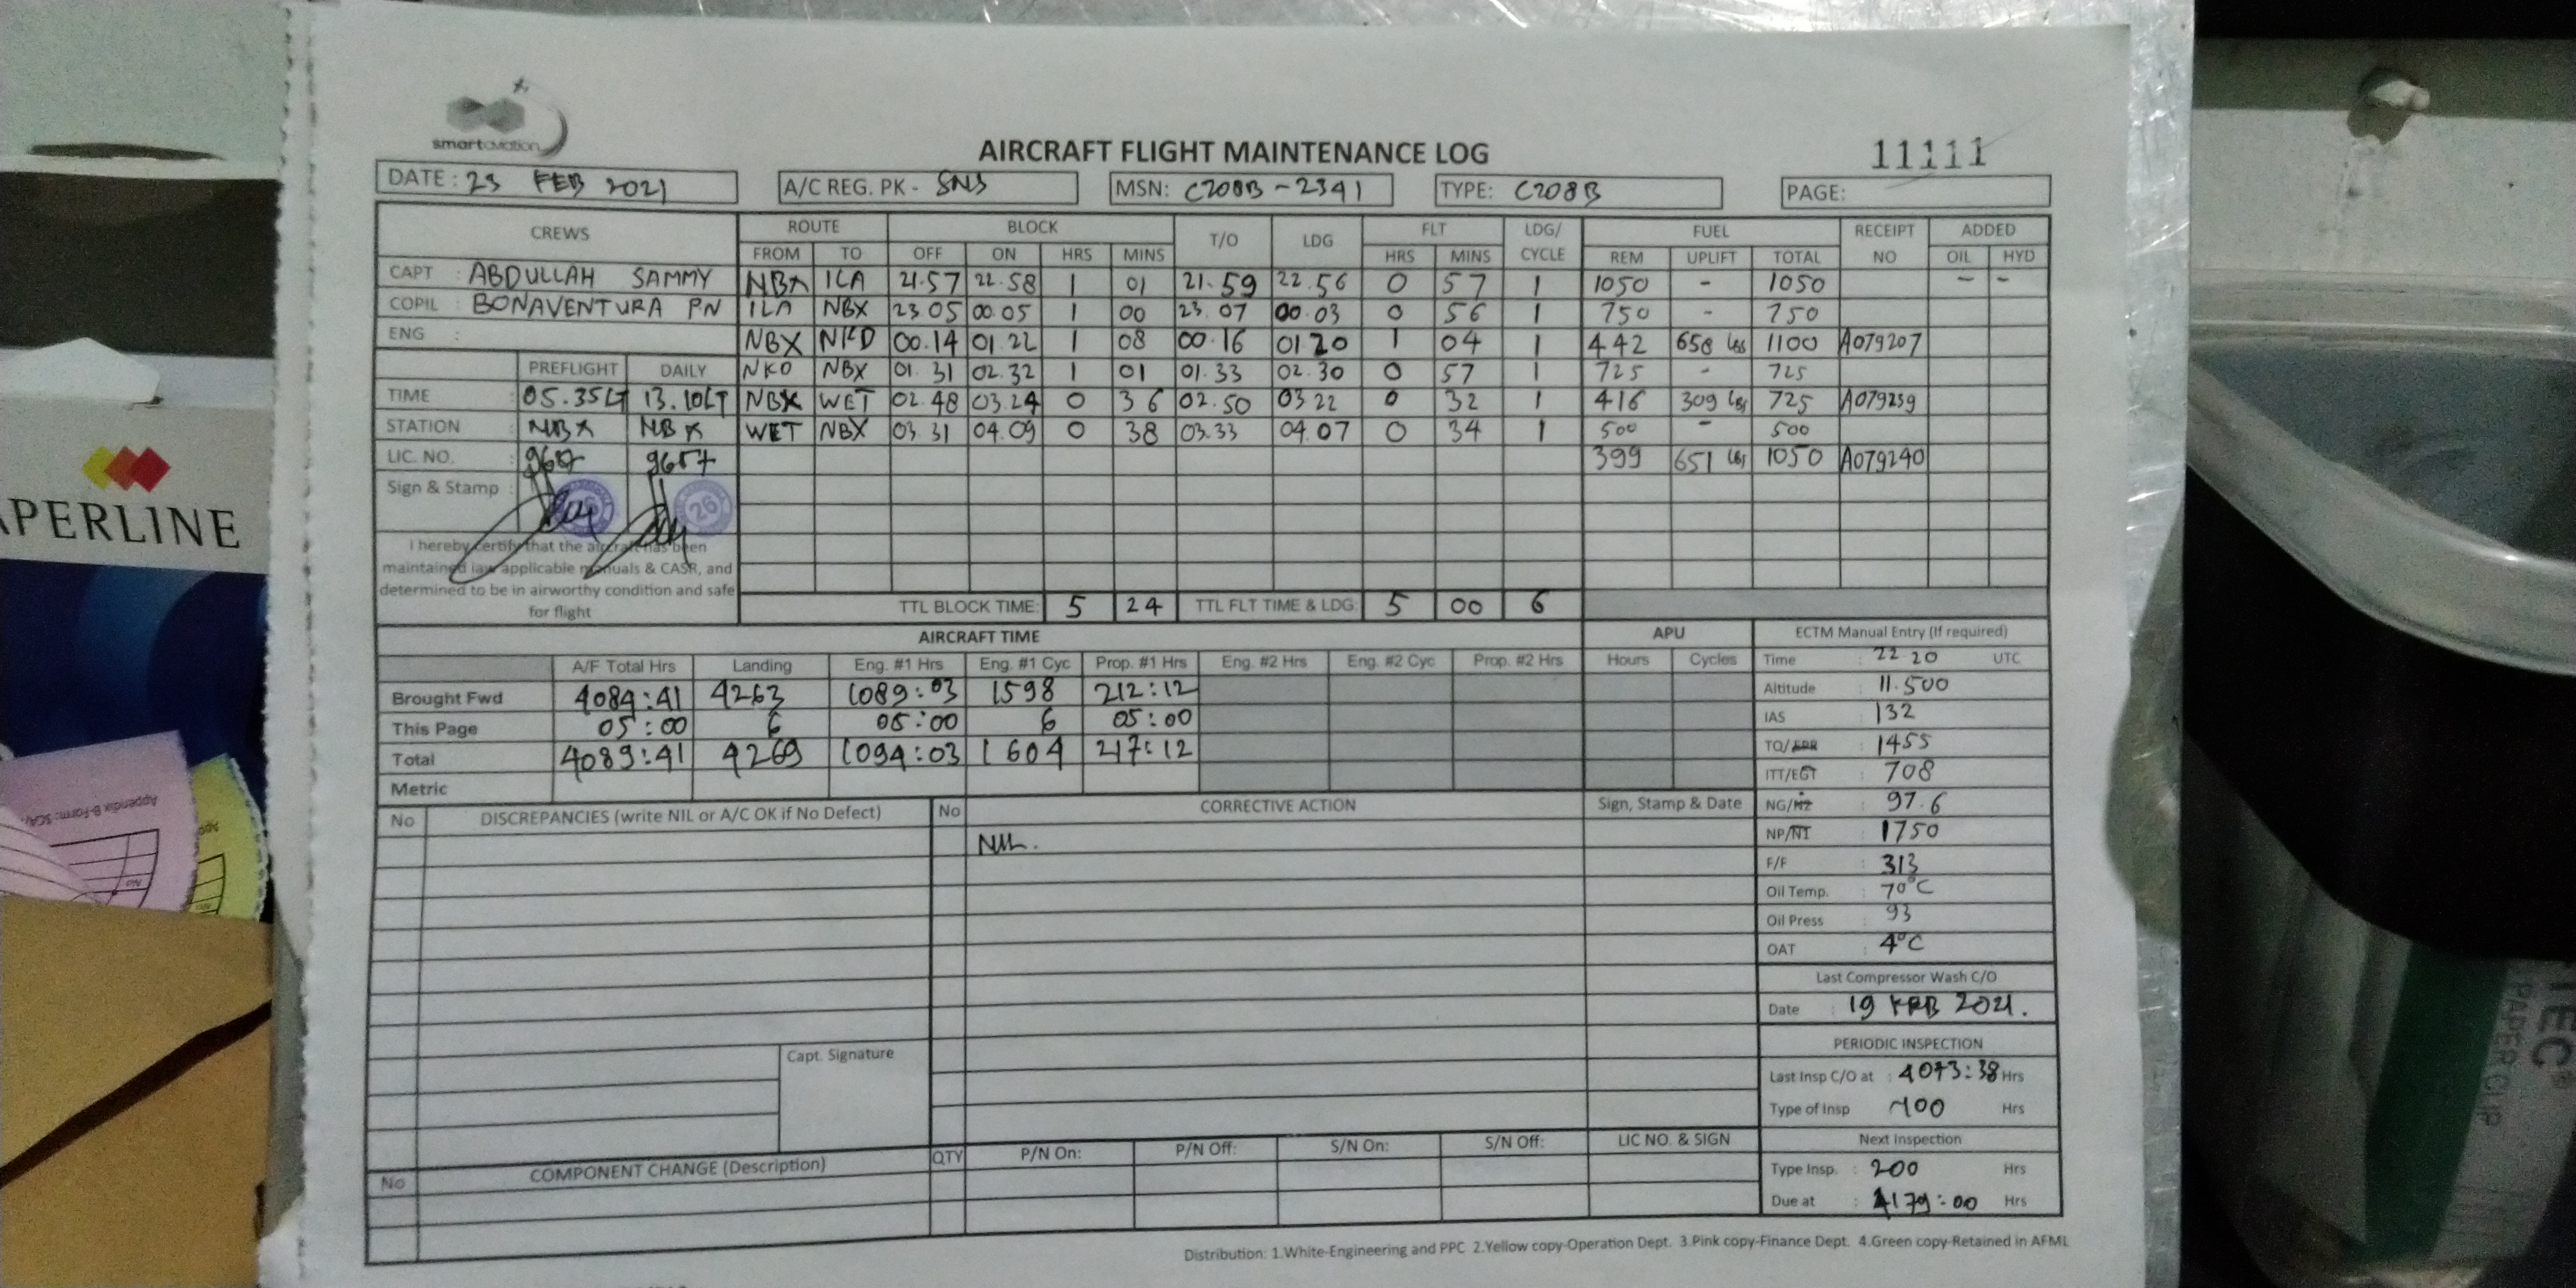 smartaviation
AIRCRAFT FLIGHT MAINTENANCE LOG
11111
DATE : 23 FEB 2021
A/C REG. PK - SNS
MSN: C208B-2341
TYPE: C208B
PAGE:
CREWS ROUTE BLOCK T/O LDG FLT LDG/ CYCLE FUEL RECEIPT NO ADDED
FROM TO OFF ON HRS MINS HRS MINS REM UPLIFT TOTAL OIL HYD
CAPT : ABDULLAH SAMMY NBX ILA 21.57 22.58 1 01 21.59 22.56 0 57 1 1050 - 1050 - -
COPIL : BONAVENTURA PN ILA NBX 23 05 00.05 1 00 23.07 00.03 0 56 1 750 - 750
ENG : NBX NKD 00.14 01.22 1 08 00.16 01 20 1 04 1 442 658 Lbs 1100 A079207
PREFLIGHT DAILY NKD NBX 01.31 02.32 1 01 01.33 02.30 0 57 1 725 - 725
TIME : 05.35LT 13.10LT NBX WET 02.48 03.24 0 36 02.50 03 22 0 32 1 416 309 Lbs 725 A079239
STATION : NBX NBX WET NBX 03.31 04.09 0 38 03.33 04.07 0 34 1 500 - 500
LIC. NO. : 9657 9657 399 651 Lbs 1050 A079240
Sign & Stamp :
26
I hereby certify that the aircraft has been
maintained iaw applicable manuals & CASR, and
determined to be in airworthy condition and safe
for flight
TTL BLOCK TIME: 5 24 TTL FLT TIME & LDG: 5 00 6
AIRCRAFT TIME APU ECTM Manual Entry (If required)
A/F Total Hrs Landing Eng. #1 Hrs Eng. #1 Cyc Prop. #1 Hrs Eng. #2 Hrs Eng. #2 Cyc Prop. #2 Hrs Hours Cycles
Brought Fwd 4084:41 4263 1089:03 1598 212:12
This Page 05:00 6 05:00 6 05:00
Total 4089:41 4269 1094:03 1604 217:12
Metric
Time : 22 20 UTC
Altitude : 11.500
IAS : 132
TQ/EPR : 1455
ITT/EGT : 708
NG/N2 : 97.6
NP/N1 : 1750
F/F : 313
Oil Temp. : 70°C
Oil Press : 93
OAT : 4°C
Last Compressor Wash C/O
Date : 19 FEB 2021.
PERIODIC INSPECTION
Last Insp C/O at : 4073:38 Hrs
Type of Insp 100 Hrs
Next Inspection
Type Insp. : 200 Hrs
Due at : 4179:00 Hrs
No DISCREPANCIES (write NIL or A/C OK if No Defect) No CORRECTIVE ACTION Sign, Stamp & Date
NIL.
Capt. Signature
No COMPONENT CHANGE (Description) QTY P/N On: P/N Off: S/N On: S/N Off: LIC NO. & SIGN
Distribution: 1.White-Engineering and PPC 2.Yellow copy-Operation Dept. 3.Pink copy-Finance Dept. 4.Green copy-Retained in AFML
APERLINE
Appendix B-Form: SCA/
No
TEC
PAPER CLIP